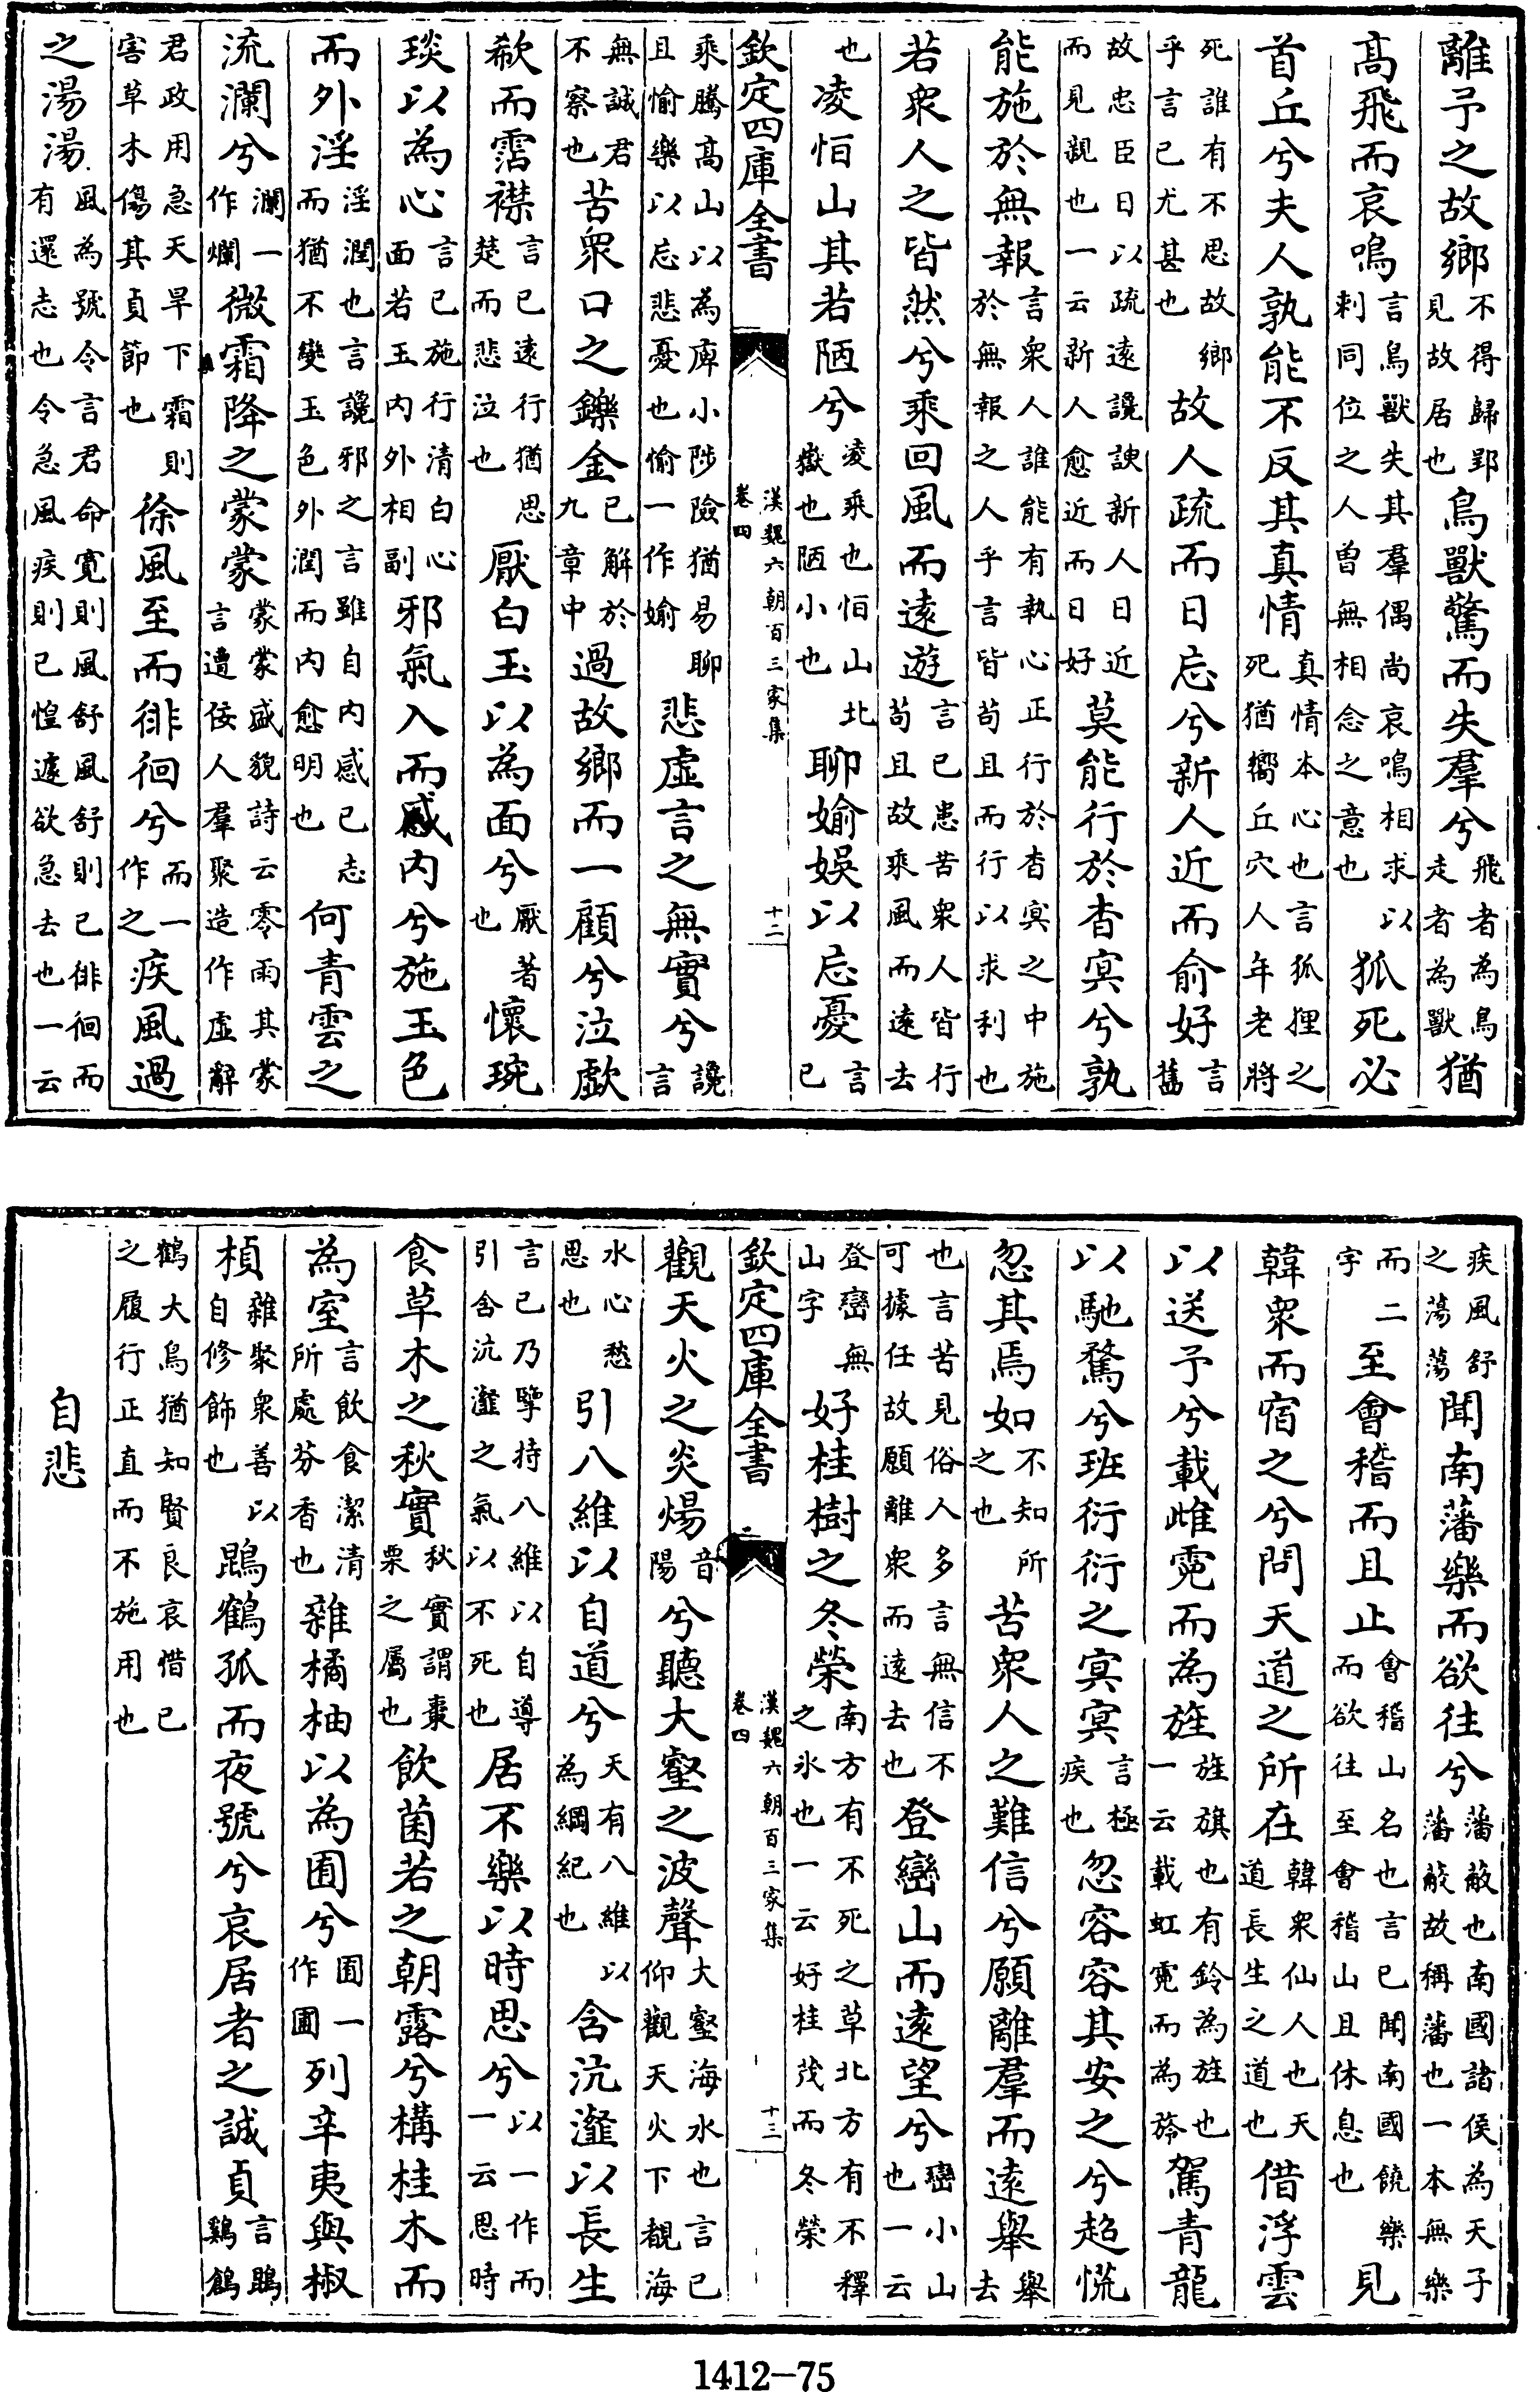 離予之故鄉不得歸郢見故居也鳥獸驚而失羣兮飛者為鳥走者為獸猶
高飛而哀鳴言鳥獸失其羣偶尚哀鳴相求以刺同位之人曽無相念之意也狐死必
首丘兮夫人孰能不反其真情真情本心也言狐狸之死猶嚮丘穴人年老將
死誰有不思故鄉乎言已尤甚也故人疏而日忘兮新人近而俞好言舊
故忠臣日以疏遠讒諛新人日近而見親也一云新人愈近而日好莫能行於杳冥兮孰
能施於無報言衆人誰能有執心正行於杳冥之中施於無報之人乎言皆苟且而行以求利也
若衆人之皆然兮乘回風而遠遊言已患苦衆人皆行苟且故乘風而遠去
也凌恒山其若陋兮凌乘也恒山北嶽也陋小也聊媮娯以忘憂言已
欽定四庫全書 漢魏六朝百三家集 卷四 十二
乘騰高山以為庳小陟險猶易聊且愉樂以忘悲憂也愉一作媮悲虛言之無實兮讒言
無誠君不察也苦衆口之鑠金已解於九章中過故鄉而一顧兮泣歔
欷而霑襟言已遠行猶思楚而悲泣也厭白玉以為面兮厭著也懷琬
琰以為心言已施行清白心面若玉內外相副邪氣入而感內兮施玉色
而外淫淫潤也言讒邪之言雖自內感已志而猶不變玉色外潤而內愈明也何青雲之
流瀾兮瀾一作爛微霜降之蒙蒙蒙蒙盛貌詩云零雨其蒙言遭佞人羣聚造作虛辭
君政用急天旱下霜則害草木傷其貞節也徐風至而徘徊兮而一作之疾風過
之湯湯風為號令言君命寛則風舒風舒則已徘徊而有還志也令急風疾則已惶遽欲急去也一云
疾風舒之蕩蕩聞南藩樂而欲往兮藩蔽也南國諸侯為天子藩蔽故稱藩也一本無樂
而二字至會稽而且止會稽山名也言已聞南國饒樂而欲往至會稽山且休息也見
韓衆而宿之兮問天道之所在韓衆仙人也天道長生之道也借浮雲
以送予兮載雌霓而為旌旌旗也有鈴為旌也一云載虹霓而為旍駕青龍
以馳騖兮班衍衍之冥冥言極疾也忽容容其安之兮超慌
忽其焉如不知所之也苦衆人之難信兮願離羣而遠舉舉去
也言苦見俗人多言無信不可據任故願離衆而遠去也登巒山而遠望兮巒小山也一云
登巒無山字好桂樹之冬榮南方有不死之草北方有不釋之氷也一云好桂茂而冬榮
欽定四庫全書 漢魏六朝百三家集 卷四 十三
觀天火之炎煬音陽兮聽大壑之波聲大壑海水也言已仰觀天火下覩海
水心愁思也引八維以自道兮天有八維以為綱紀也含沆瀣以長生
言已乃擥持八維以自導引含沆瀣之氣以不死也居不樂以時思兮以一作而一云思時
食草木之秋實秋實謂棗栗之屬也飲菌若之朝露兮構桂木而
為室言飲食潔清所處芬香也雜橘柚以為囿兮囿一作圃列辛夷與椒
楨雜聚衆善以自修飾也鵾鶴孤而夜號兮哀居者之誠貞言鵾雞鶬
鶴大鳥猶知賢良哀惜已之履行正直而不施用也
自悲
1412-75